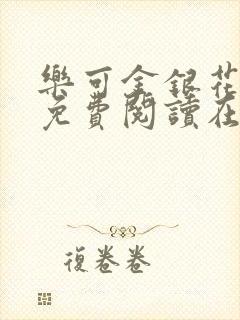 樂可金銀花
免費閱讀在
復卷卷